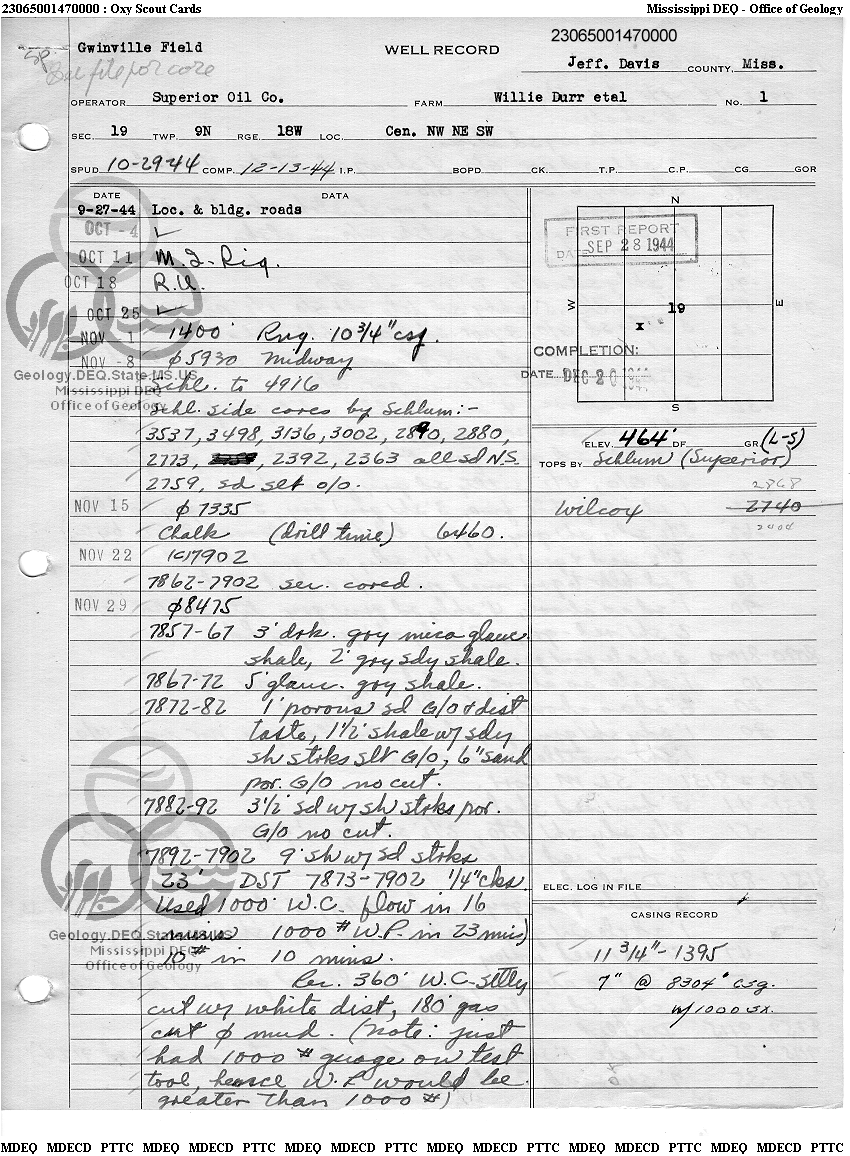 23065001470000 : Oxy Scout Cards Mississippi DEQ - Office of Geology
23065001470000
Gwinville Field WELL RECORD
See file for core
Jeff. Davis COUNTY, Miss.
OPERATOR Superior Oil Co. FARM Willie Durr etal No. 1
SEC. 19 TWP. 9N RGE. 18W LOC. Cen. NW NE SW
SPUD 10-29-44 COMP. 12-13-44 I.P. BOPD CK. T.P. C.P. CG GOR
DATE DATA
9-27-44 Loc. & bldg. roads
OCT - 4 ✓
OCT 11 M.I. Rig.
OCT 18 R.U.
OCT 25 ✓
NOV - 1 1400' Rng. 10 3/4" csg.
NOV - 8 φ 5930 Midway
Schl. to 4916
Schl. side cores by Schlum:-
3537, 3498, 3136, 3002, 2890, 2880,
2773, 2392, 2363 all sd N.S.
2759, sd slt o/o.
NOV 15 φ 7335
Chalk (drill time) 6460.
NOV 22 7902
7862-7902 ser. cored.
NOV 29 φ8475
7857-67 3' drk. gry mica glauc
shale, 2' gry sdy shale.
7867-72 5' glauc. gry shale.
7872-82 1' porous sd G/O & dist
taste, 1 1/2' shale w/ sdy
sh strks slt G/O, 6" sand
por. G/O no cut.
7882-92 3 1/2' sd w/ sh strks por.
G/O no cut.
7892-7902 9' sh w/ sd strks
23' DST 7873-7902 1/4" cks.
Used 1000' W.C. flow in 16
mins 1000 # W.P. in 23 mins)
10 # in 10 mins.
Rec. 360' W.C. sltly
cut w/ white dist, 180' gas
cut φ mud. (Note: just
had 1000 # guage on test
tool, hence W.P. would be
greater than 1000 #)
N
W E
S
19
x
FIRST REPORT
DATE SEP 28 1944
COMPLETION:
DATE DEC 20 1944
ELEV. 464' DF GR. (L-S)
TOPS BY Schlum (Superior)
2868
Wilcox 2740
ELEC. LOG IN FILE
CASING RECORD
11 3/4" - 1395
7" @ 8304' csg.
w/ 1000 sx.
Geology.DEQ.State.MS.US
Mississippi DEQ
Office of Geology
Geology.DEQ.State.MS.US
Mississippi DEQ
Office of Geology
MDEQ MDECD PTTC MDEQ MDECD PTTC MDEQ MDECD PTTC MDEQ MDECD PTTC MDEQ MDECD PTTC MDEQ MDECD PTTC